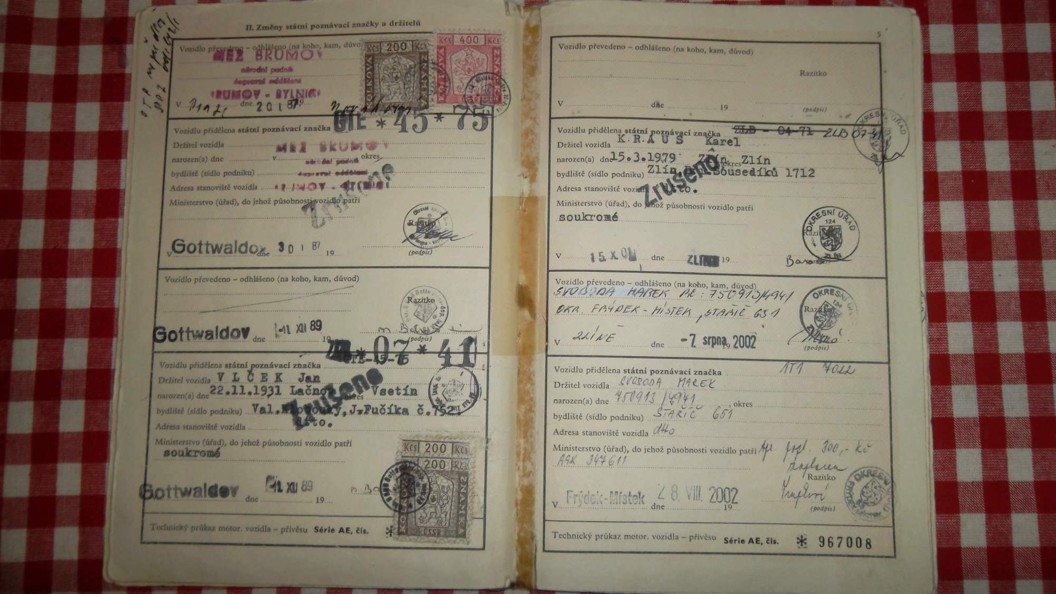 II. Změny státní poznávací značky a držitelů
Vozidlo převedeno – odhlášeno (na koho, kam, důvod)
MEZ BRUMOV
národní podnik
dopravní oddělení
BRUMOV - BYLNICE
200 Kčs
400
KOLKOVÁ
ZNAČKA
V dne 20 I 87
Vozidlu přidělena státní poznávací značka GTE * 45 * 75
Držitel vozidla MEZ BRUMOV
narozen(a) dne národní podnik okres
bydliště (sídlo podniku) dopravní oddělení
Adresa stanoviště vozidla BRUMOV - BYLNICE
Zrušeno
Ministerstvo (úřad), do jehož působnosti vozidlo patří
Razítko
Gottwaldov dne 30 I 87 19
(podpis)
Vozidlo převedeno – odhlášeno (na koho, kam, důvod)
Razítko
Gottwaldov dne -1. XII 89 19
(podpis)
* 07 * 41
Vozidlu přidělena státní poznávací značka
Držitel vozidla VLČEK Jan
narozen(a) dne 22.11.1931 Lačnov okres Vsetín
bydliště (sídlo podniku) Val.Klobouky,J.Fučíka č.752
Zrušeno
Adresa stanoviště vozidla tto.
Ministerstvo (úřad), do jehož působnosti vozidlo patří
soukromé
Kčs 200 Kčs
Kčs 200 Kčs
KOLKOVÁ
ZNAČKA
Gottwaldov dne -1. XII 89 19
Technický průkaz motor. vozidla – přívěsu Série AE, čís. *
5
Vozidlo převedeno – odhlášeno (na koho, kam, důvod)
Razítko
V dne 19
(podpis)
Vozidlu přidělena státní poznávací značka ZLD - 04-71 ZLD 07-41
Držitel vozidla KRAUS Karel
narozen(a) dne 15.3.1979 Zlín okres Zlín
bydliště (sídlo podniku) Zlín, Sousedíků 1712
Zrušeno
Adresa stanoviště vozidla tto.
Ministerstvo (úřad), do jehož působnosti vozidlo patří
soukromé
OKRESNÍ ÚŘAD
124
Razítko
V 15. X 01 ZLÍN 19
(podpis)
Vozidlo převedeno – odhlášeno (na koho, kam, důvod)
SVOBODA MAREK RČ: 750913/4941
OKR. FRÝDEK-MÍSTEK, STAŘÍČ 651
OKRESNÍ ÚŘAD
Razítko
V ZLÍNĚ dne -7. srpna, 2002
(podpis)
Vozidlu přidělena státní poznávací značka 1T1 7022
Držitel vozidla SVOBODA MAREK
narozen(a) dne 750913/4941 okres
bydliště (sídlo podniku) STAŘÍČ 651
Adresa stanoviště vozidla dtto
Ministerstvo (úřad), do jehož působnosti vozidlo patří
800,- Kč
Razítko
V Frýdek-Místek dne 28. VIII. 2002 19
(podpis)
Technický průkaz motor. vozidla – přívěsu Série AE, čís. * 967008